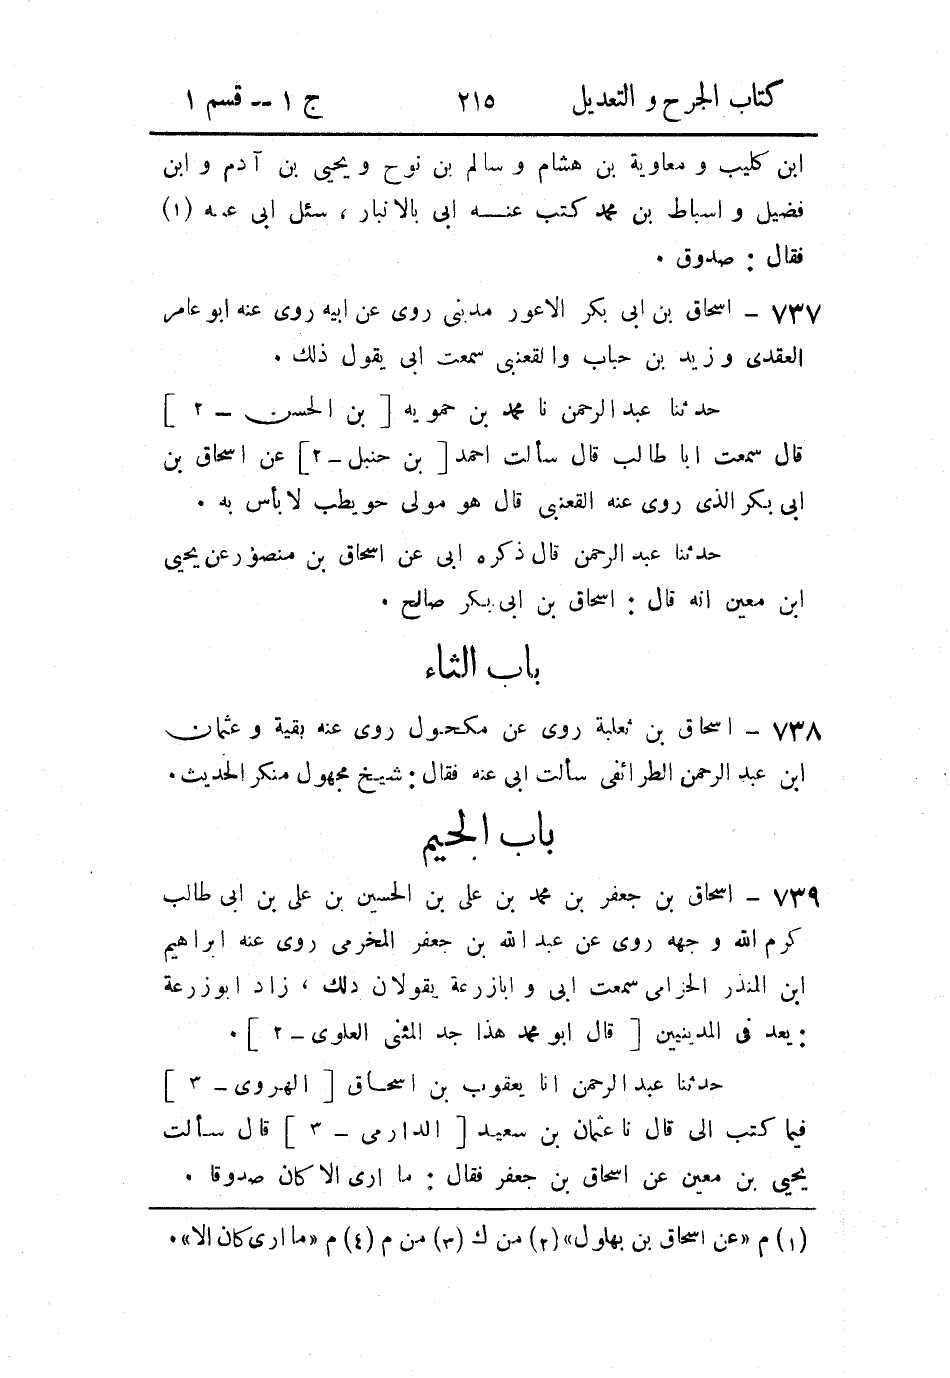 كتاب الجرح و التعديل ٢١٥ ج ١ -- قسم ١
ابن كليب و معاوية بن هشام و سالم بن نوح و يحيى بن آدم و ابن
فضيل و اسباط بن محمد كتب عنه ابى بالانبار ، سئل ابى عنه (١)
فقال : صدوق .
٧٣٧ - اسحاق بن ابى بكر الاعور مدينى روى عن ابيه روى عنه ابو عامر
العقدى و زيد بن حباب والقعنبى سمعت ابى يقول ذلك .
حدثنا عبد الرحمن نا محمد بن حمويه [ بن الحسن - ٢ ]
قال سمعت ابا طالب قال سألت احمد [ بن حنبل - ٢ ] عن اسحاق بن
ابى بكر الذى روى عنه القعنبى قال هو مولى حويطب لا بأس به .
حدثنا عبد الرحمن قال ذكره ابى عن اسحاق بن منصور عن يحيى
ابن معين انه قال : اسحاق بن ابى بكر صالح .
باب الثاء
٧٣٨ - اسحاق بن ثعلبة روى عن مكحول روى عنه بقية و عثمان
ابن عبد الرحمن الطرائفى سألت ابى عنه فقال : شيخ مجهول منكر الحديث .
باب الجيم
٧٣٩ - اسحاق بن جعفر بن محمد بن على بن الحسين بن على بن ابى طالب
كرم الله و جهه روى عن عبد الله بن جعفر المخرمى روى عنه ابراهيم
ابن المنذر الحزامى سمعت ابى و ابا زرعة يقولان ذلك ، زاد ابو زرعة
: يعد فى المدينيين [ قال ابو محمد هذا جد المثنى العلوى - ٢ ] .
حدثنا عبد الرحمن انا يعقوب بن اسحاق [ الهروى - ٣ ]
فيما كتب الى قال نا عثمان بن سعيد [ الدارمى - ٣ ] قال سألت
يحيى بن معين عن اسحاق بن جعفر فقال : ما ارى الا كان صدوقا .
(١) م «عن اسحاق بن بهلول» (٢) من ك (٣) من م (٤) م «ما ارى كان الا» .